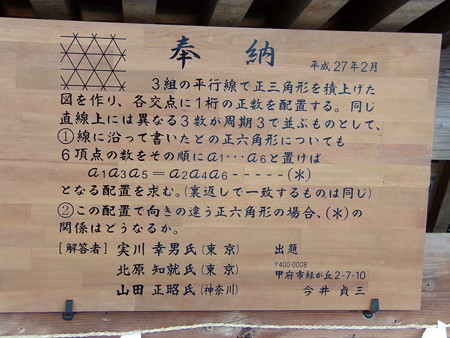 奉納
平成27年2月
3組の平行線で正三角形を積上げた
図を作り、各交点に1桁の正数を配置する。同じ
直線上には異なる3数が周期3で並ぶものとして、
①線に沿って書いたどの正六角形についても
6頂点の数をその順にa1···a6と置けば
a1a3a5=a2a4a6-----(氺)
となる配置を求む。(裏返して一致するものは同じ)
②この配置で向きの違う正六角形の場合、(氺)の
関係はどうなるか。
[解答者] 実川 幸男氏(東京)
北原 知就氏(東京)
山田 正昭氏(神奈川)
出題
〒400-0008
甲府市緑が丘2-7-10
今井 貞三